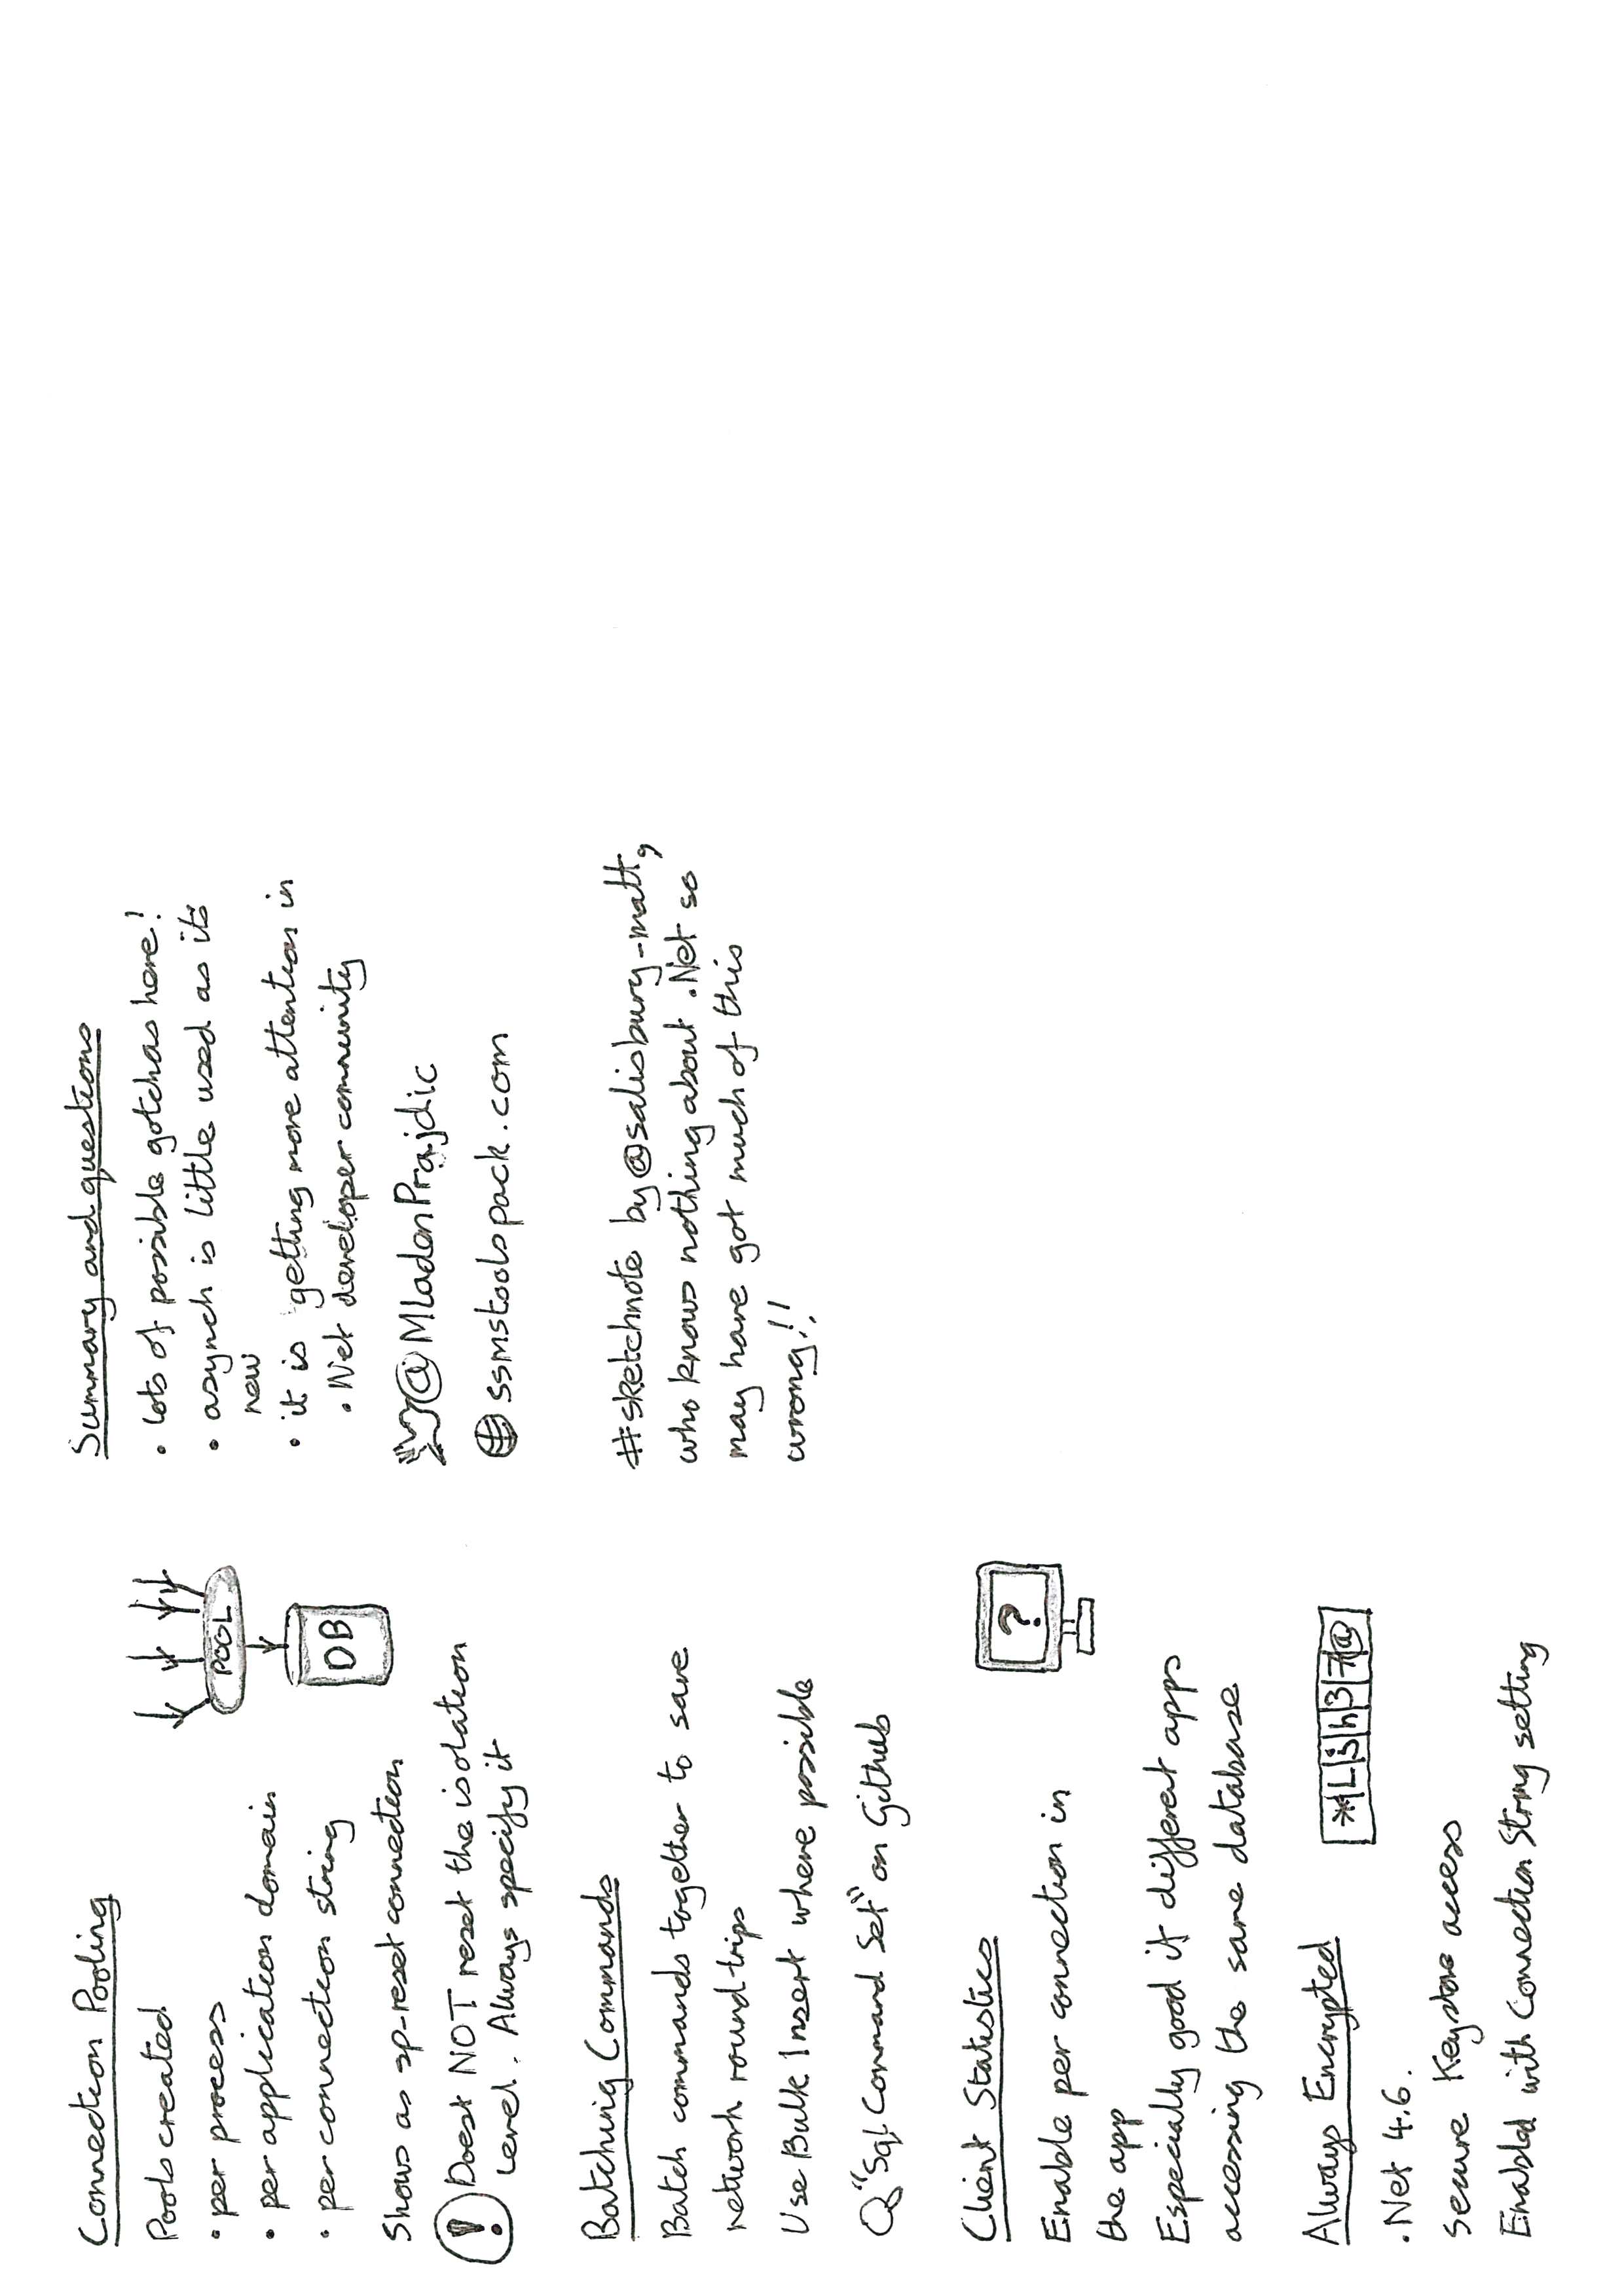 Connection Pooling
Pools created
• per process
• per application domain
• per connection string
POOL
DB
Shows as sp-reset connection
! Doest NOT reset the isolation
level. Always specify it
Batching Commands
Batch commands together to save
network round trips
Use Bulk Insert where possible
"Sql Command Set" on Github
Client Statistics
?
Enable per connection in
the app
Especially good if different apps
accessing the same database
Always Encrypted
*L5h37@
.Net 4.6.
Secure Keystore access
Enabled with Connection String setting
Summary and questions
• lots of possible gotchas here!
• asynch is little used as its
new
• it is getting more attention in
.Net developer community
@MladenPrajdic
ssmstoolspack.com
#sketchnote by @salisbury-matt,
who knows nothing about .Net so
may have got much of this
wrong!!